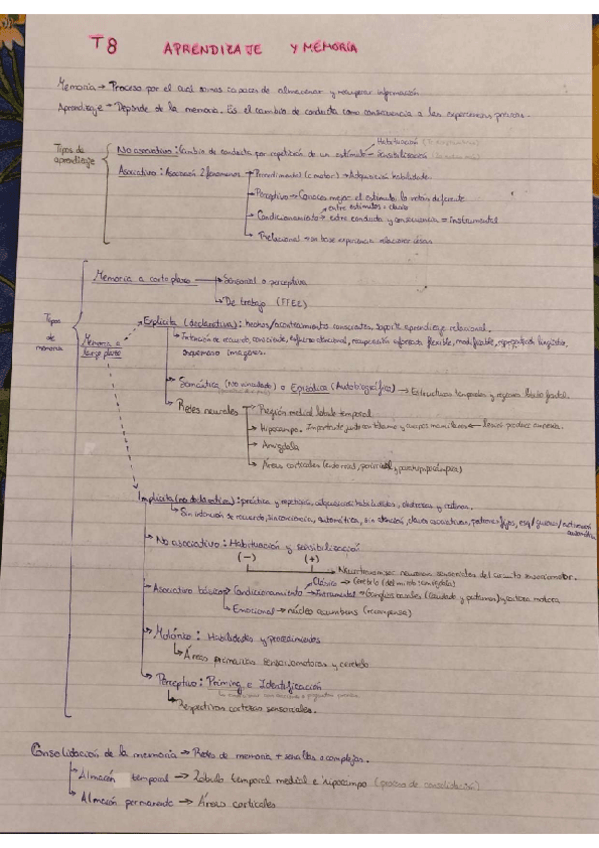 T8 APRENDIZAJE Y MEMORIA
Memoria → Proceso por el cual somos capaces de almacenar y recuperar información
Aprendizaje → Depende de la memoria. Es el cambio de conducta como consecuencia a las experiencias previas.
Habituación
Tipos de aprendizaje
No asociativo: Cambio de conducta por repetición de un estímulo → Sensibilización
Asociativo: Asociación 2 fenómenos → Procedimental (motor) → Adquisición habilidades.
Perceptivo → Conoces mejor el estímulo, la retina
entre estímulos = clásico
Condicionamiento → entre conducta y consecuencia = instrumental
Relacional → en base experiencias relacionar ideas
Tipos de memoria
Memoria a corto plazo → Sensorial o perceptiva
De trabajo (FFEE)
Memoria a largo plazo
Explícita (declarativa): hechos/acontecimiento conscientes, soporte aprendizaje relacional.
Intención de recuerdo, consciente, esfuerzo atencional, recuperación flexible, modificable,
imágenes.
Semántica (No vinculada) o Episódica (Autobiográfica) → Estructuras temporales y regiones lóbulo frontal.
Redes neurales → Región medial lóbulo temporal
Hipocampo. Importante junto con tálamo y cuerpos mamilares ← lesión produce amnesia.
Amígdala
Áreas corticales (entorrinal, perirrinal y parahipocámpica)
Implícita (no declarativa): práctica y repetición, adquisición habilidades, destrezas y rutinas.
Sin intención de recuerdo, sin consciencia, automática, sin atención, claves asociativas, patrones fijos,
automática
No asociativo: Habituación y sensibilización
(-) (+)
neuronas sensoriales del circuito sensoriomotor.
Clásico → Cerebelo (del miedo: amígdala)
Asociativo básico → Condicionamiento → Instrumental → Ganglios basales (Caudado y putamen) y corteza motora
Emocional → núcleo accumbens (recompensa)
Motórico: Habilidades y procedimientos
Áreas primarias sensoriomotoras y cerebelo
Perceptivo: Priming e Identificación
Respectivas cortezas sensoriales.
Consolidación de la memoria → Redes de memoria + sencillas o complejas.
Almacén temporal → Lóbulo temporal medial e hipocampo (proceso de consolidación)
Almacén permanente → Áreas corticales